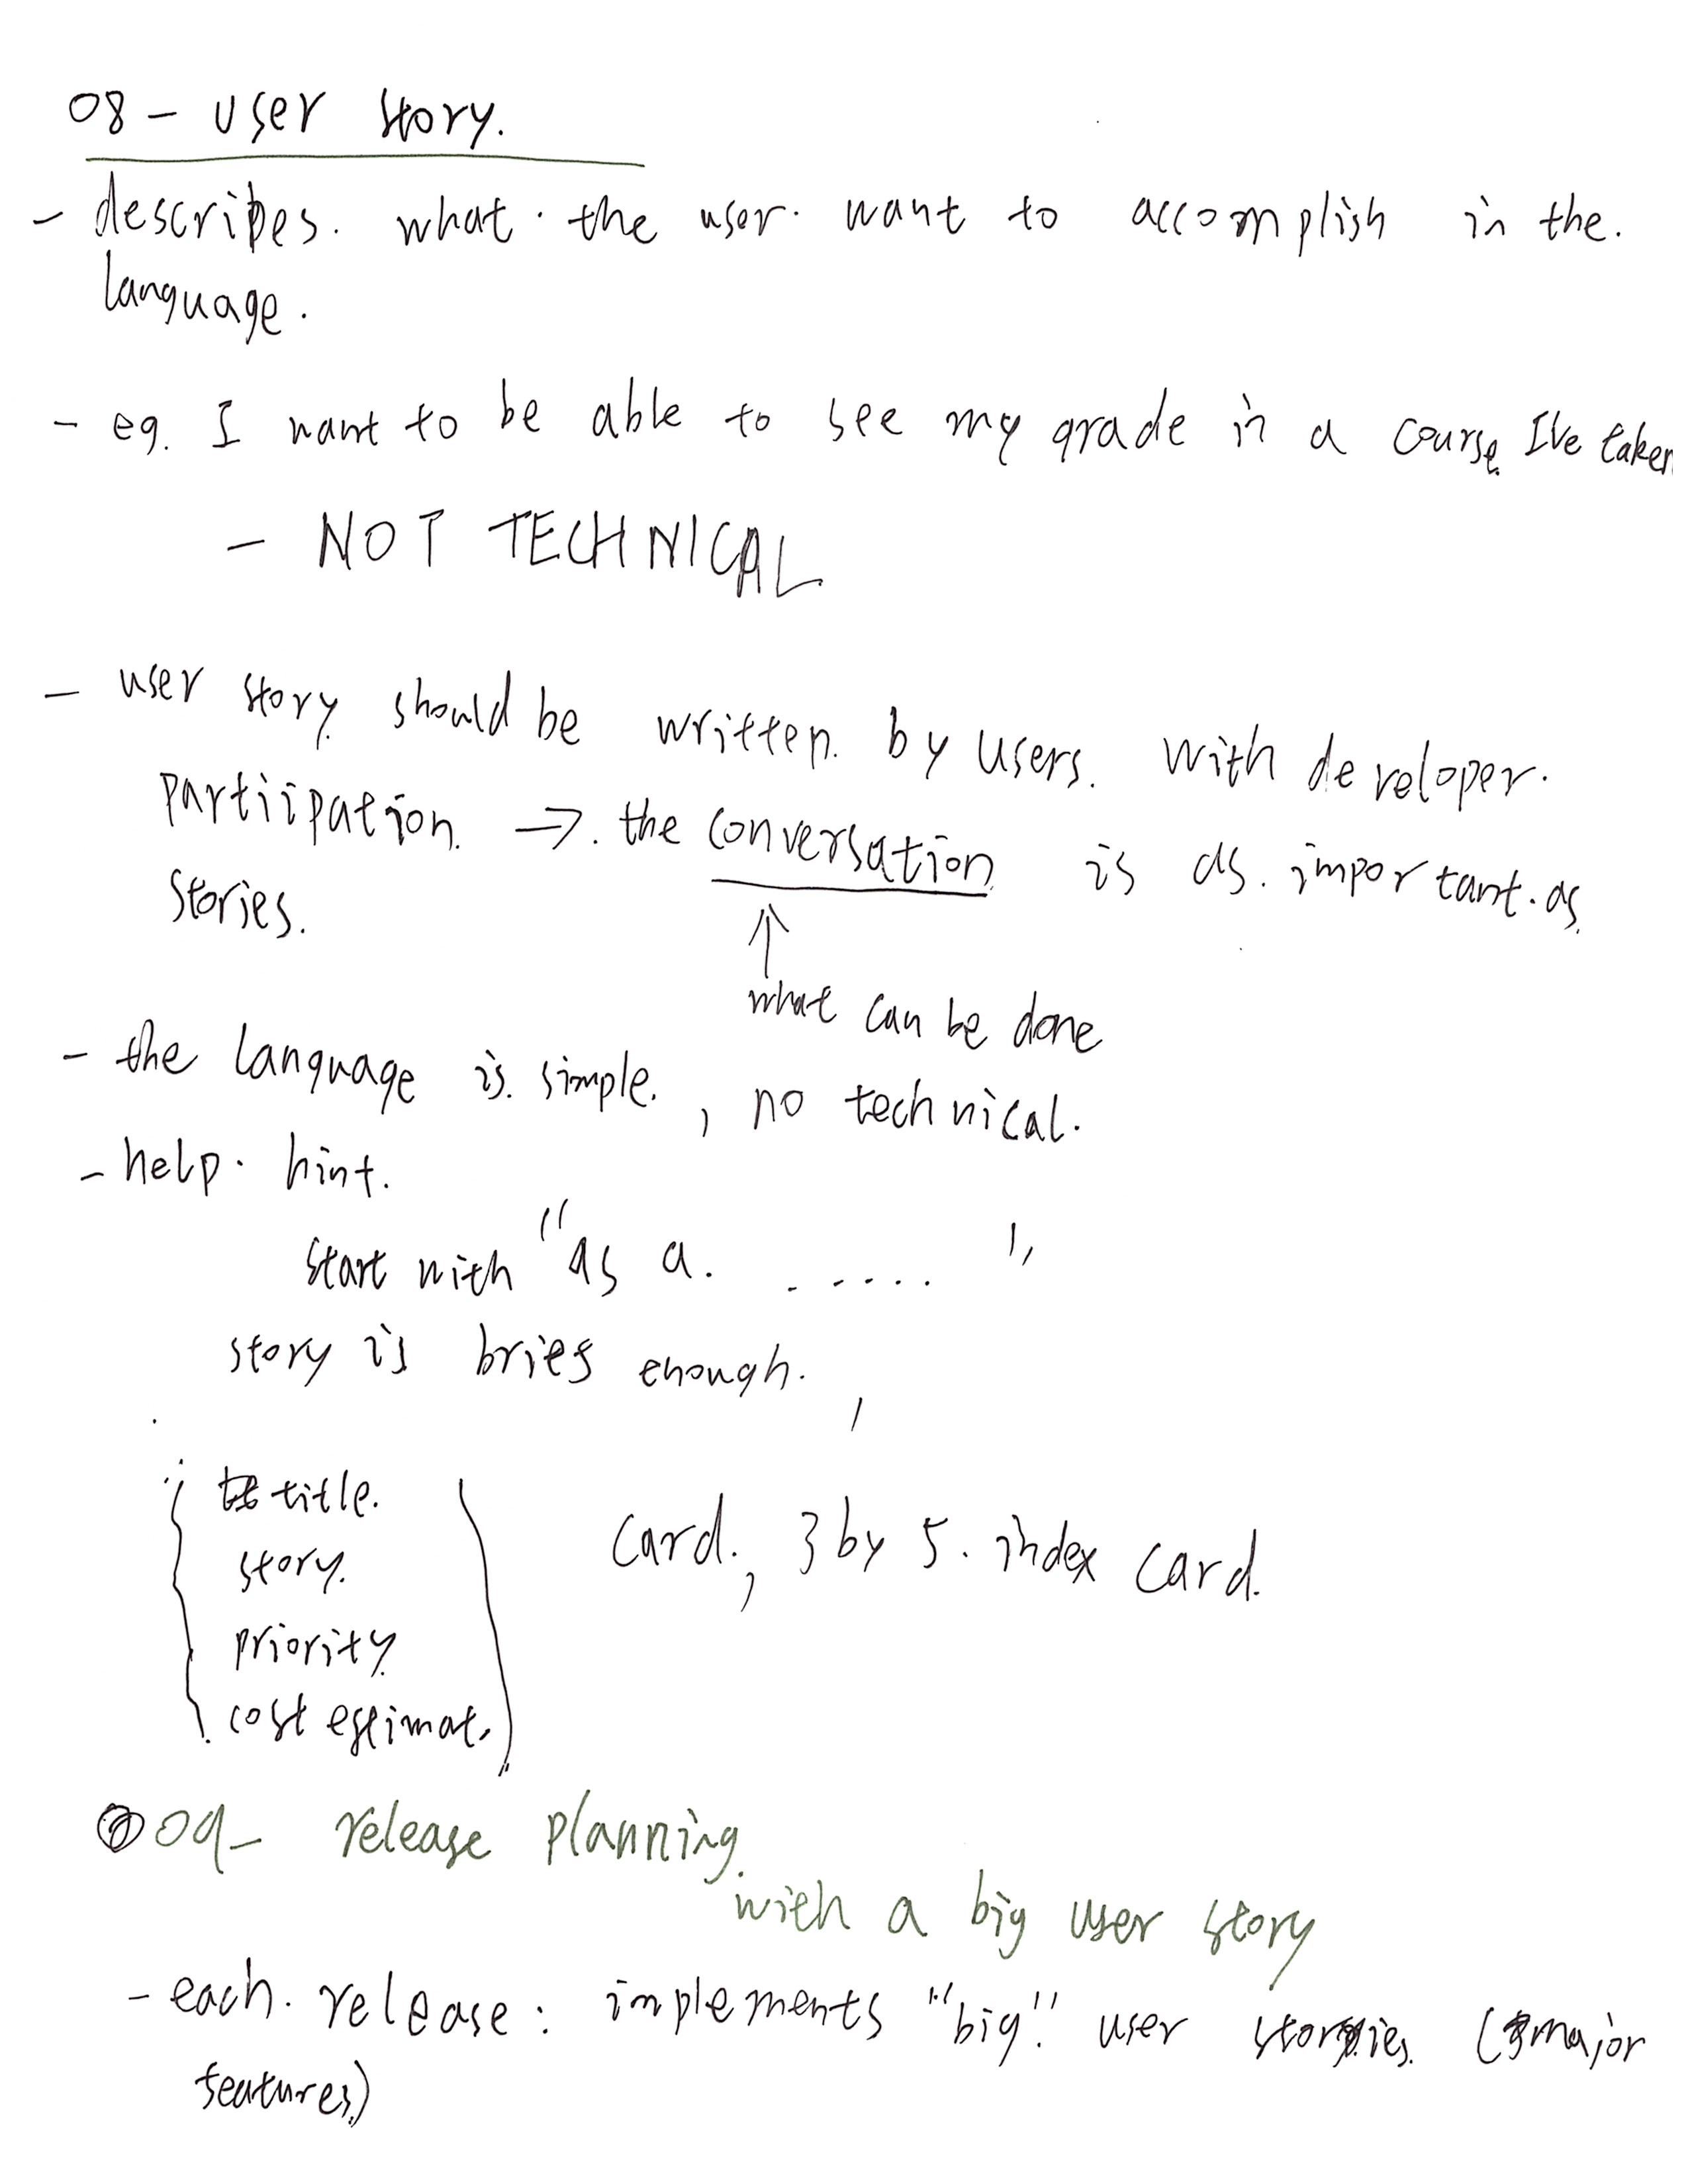 08 - user story.
- describes. what the user want to accomplish in the.
language.
- eg. I want to be able to see my grade in a course I've taken
- NOT TECHNICAL
- user story should be written by users. with developer.
partiipation. → the conversation is as important as
stories.
↑
what can be done
- the language is simple, no technical.
- help. hint.
start with "as a. ......"
story is brief enough.
title.
story.
priority
cost estimat.
card, 3 by 5. index card.
09- release planning.
with a big user story
- each. release: implements "big" user stories. (major
features)